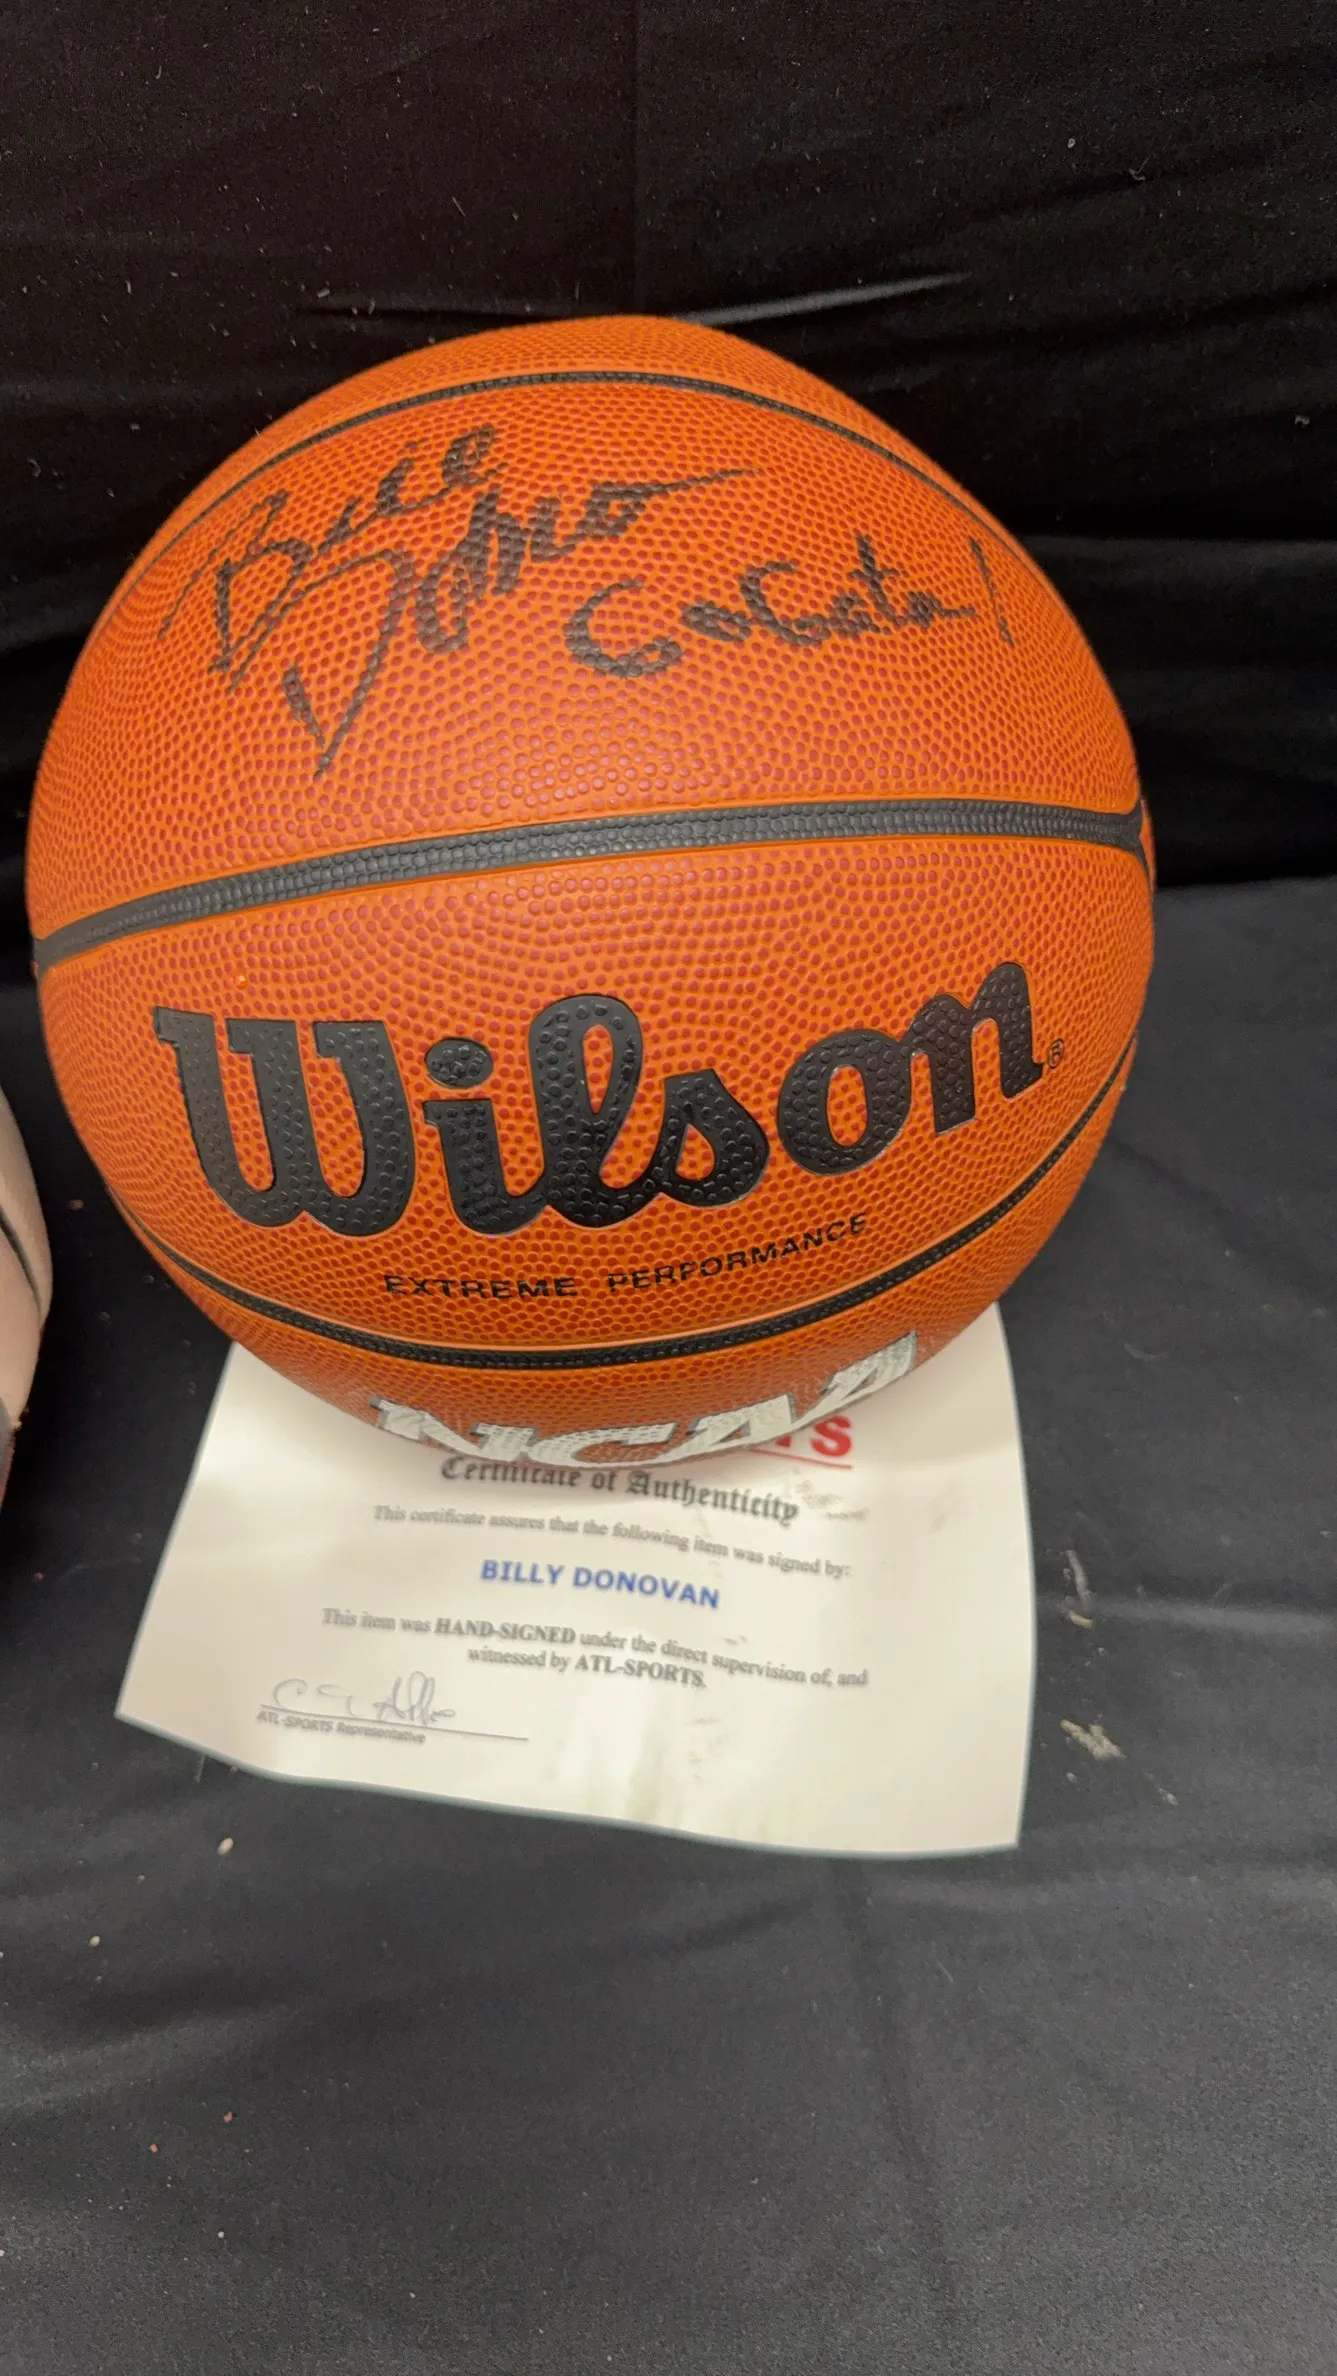 Billy
Donovan
Go Gators!
Wilson®
EXTREME PERFORMANCE
NCAA
Certificate of Authenticity
This certificate assures that the following item was signed by:
BILLY DONOVAN
This item was HAND-SIGNED under the direct supervision of, and
witnessed by ATL-SPORTS.
ATL-SPORTS Representative